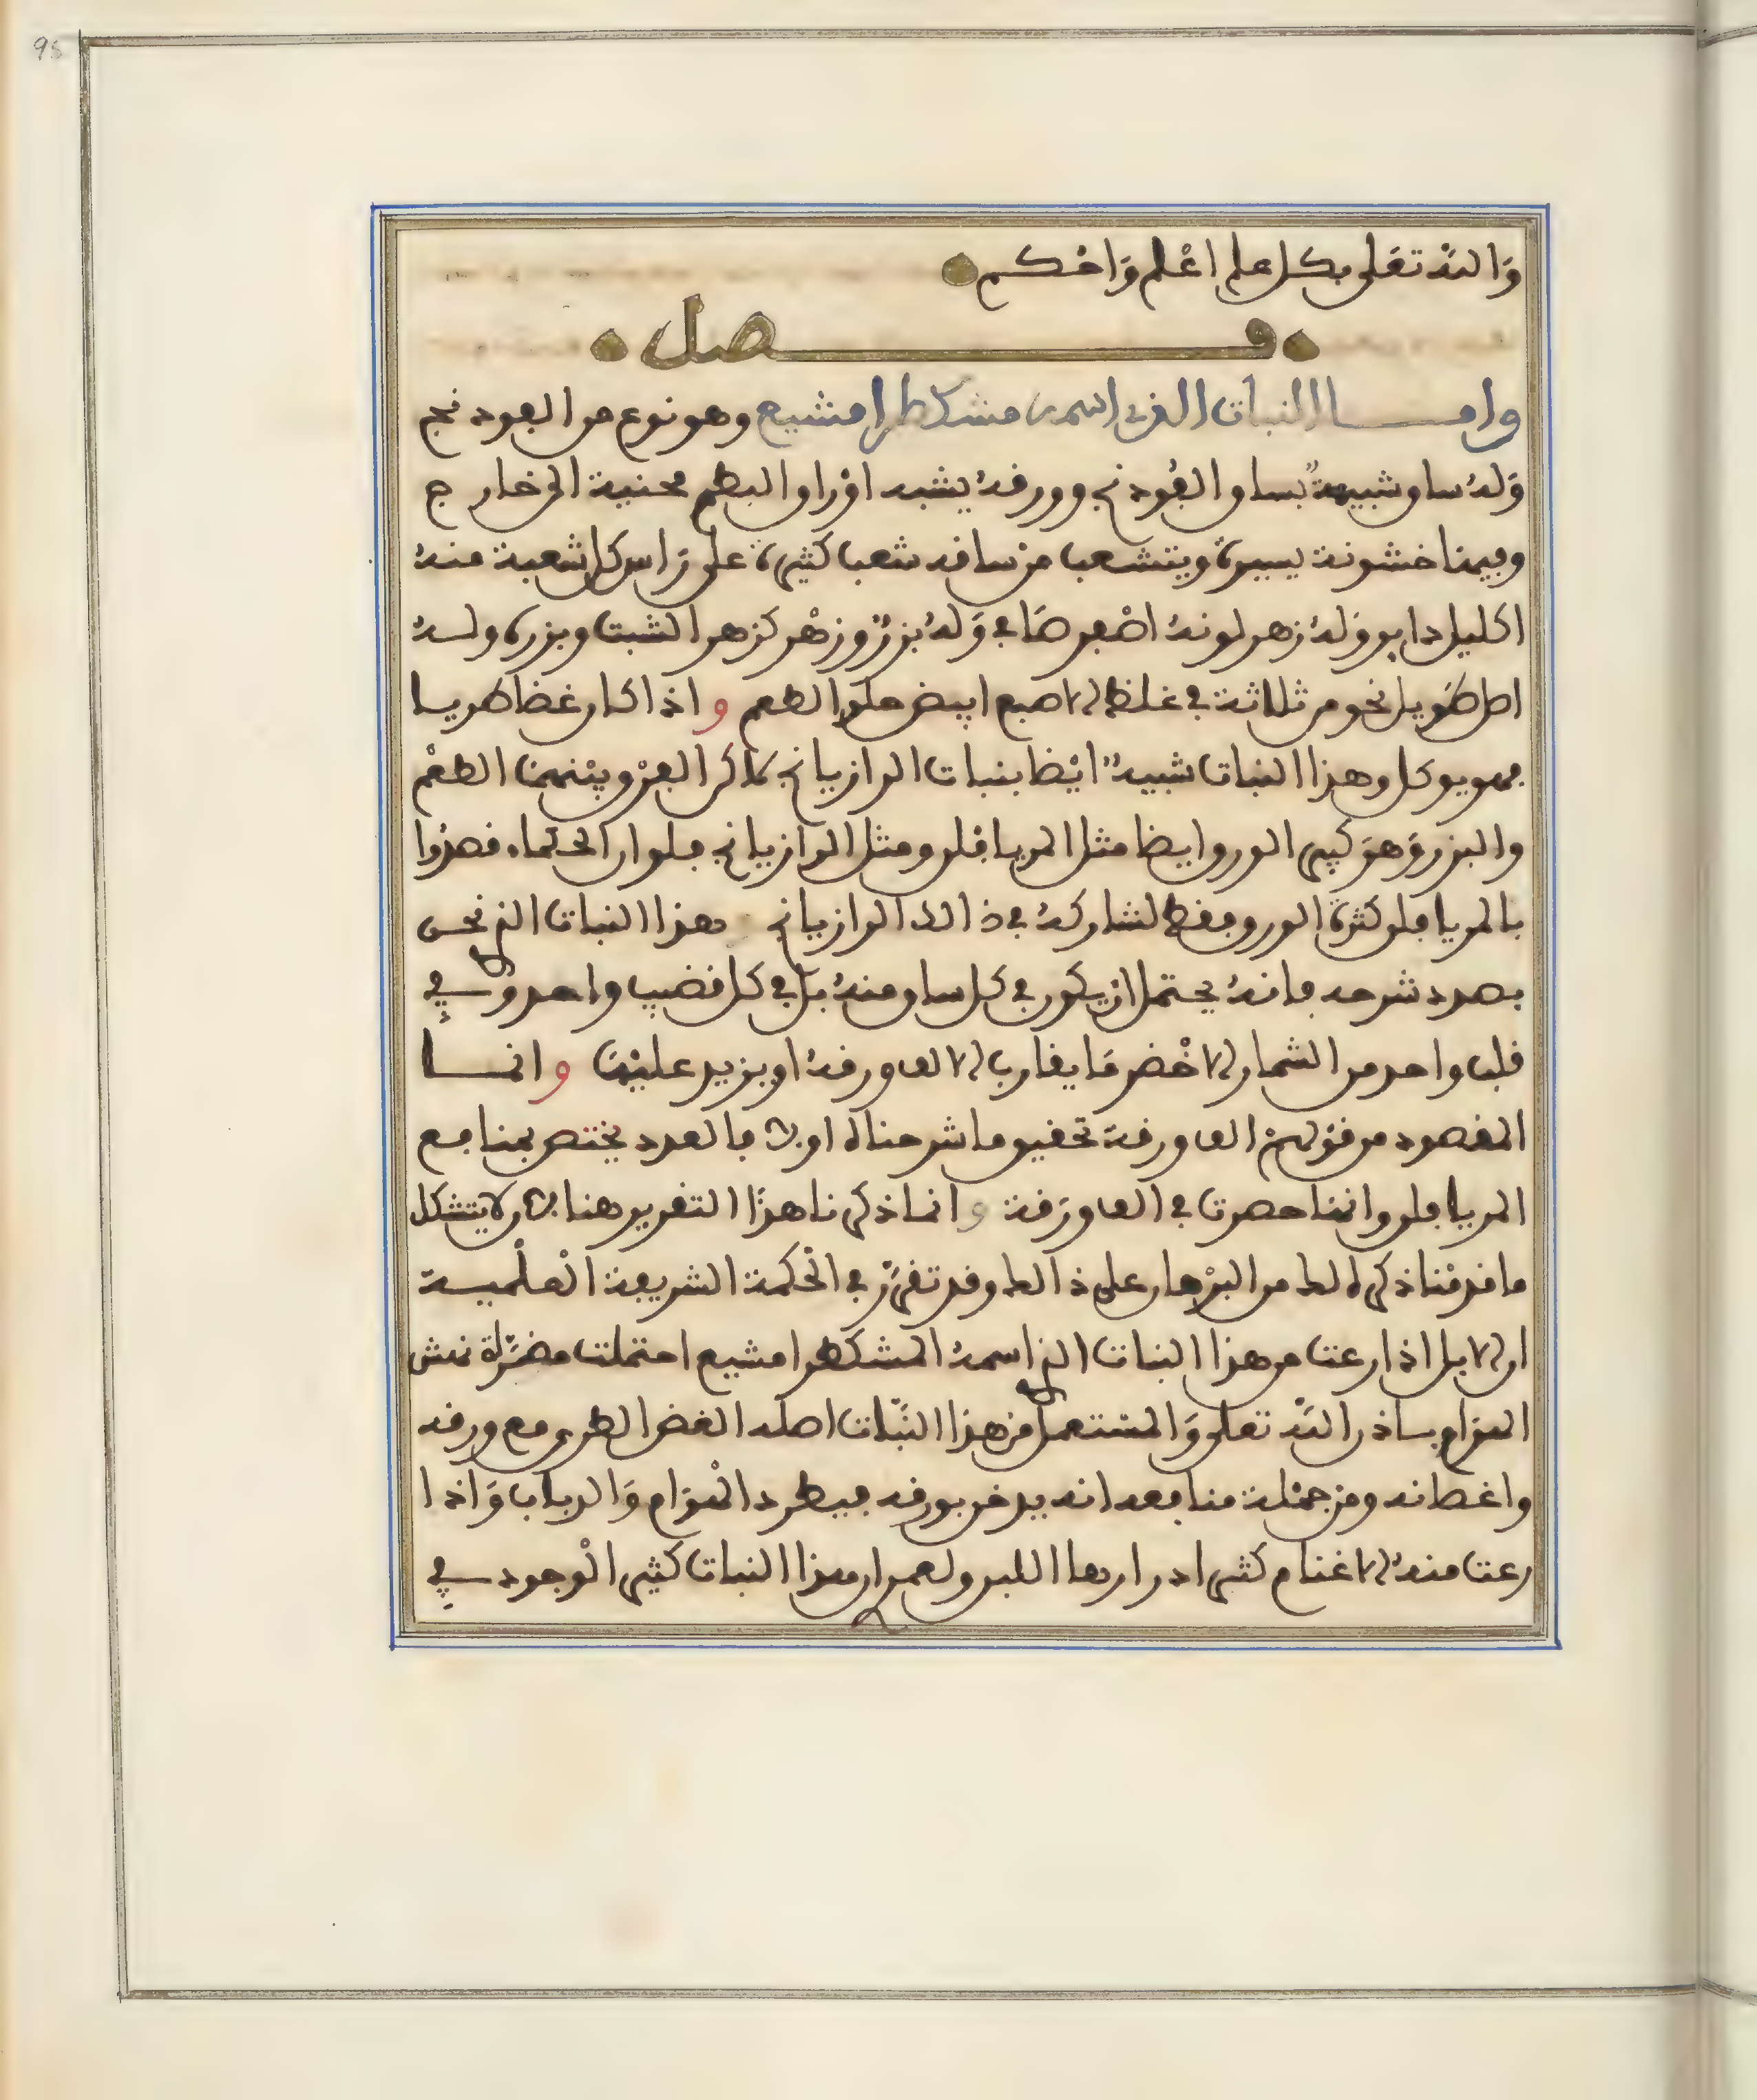 98
وَاللهُ تعَلى بكل علم اعْلم وَاحْكم
فصل
واما النبات الذي اسمه مشكطرا مشيع وهو نوع من الفودنج
وَلهُ ساق شبيهةٌ بساق الفُودنج وورقهُ يشبه اوْراق البطم محنية الى خارج
وفيها خشونة يسيرة ويتشعب من ساقه شعب كثيرة على رَاس كل شعبة منهُ
اكليل داير وَلهُ زهر لونهُ اصْفر صَافي وَلهُ بزرٌ وزهْر كزهر الشبت وبزره ولـهُ
اصل طَويل نحو من ثلاثة في غلظ الاصبع ابيض حلو الطعم و اذا كان غضا طريـا
فهو يوكل وهذا النبات شبيهٌ ايْضا بنبات الرازيانج لاكن الفرْق بيْنهما الطعْم
والبزر وَهوَ كثير الورق ايضا مثل المريافلن ومثل الرازيانج فلو ان الحكماء قصدُوا
بالمريافلن كثرة الورق فقط لشاركهُ في ذالك الرازيانج وهذا النبات الذي نحن
بصدد شرحه فانهُ يحتمل ان يكون في كل ساق منهُ بل في كل قضيب واحد وَفي
قلب واحد من الشمار الاخْضر مَا يقارب الالف ورقهُ او يزيد عليْها و انمـا
المقصود من قوْلهمْ الف ورقة تحقيق ما شرحناه اولا فالعدد يختص بمنافع
المريافلن وانها حصرت في الف ورَقة و انما ذكرنا هذَا التقرير هنا لان لا يتشكل
ما قدمْنا ذكره لك من البرْهان على ذالك وقد تقرّرَ في الْحكمة الشريفة العلْميـة
ان الابل اذا رعت من هذا النبات الذي اسمهُ المشكطرا مشيع احتملت مضرّة نهش
الهوَام بـاذن اللهْ تعلى وَالمسْتعمل منْ هذا النّبات اصله الغض الطري مع ورقه
واغصانه ومنْ جمْلة منافعه انه يدخن بورقه فيطرد الْهوَام وَالدباب وَاذا
رعت منهُ الاغنام كثر ادرارها اللبن ولعمري ان هذا النبات كثير الْوجود في